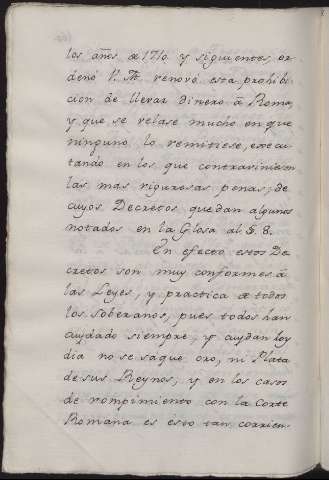 los añes de 1710 y siguientes, or
denó V. M. renovó esta prohibi
cion de llevar dinero à Roma,
y que se velase mucho en que
ninguno lo remitiese, execu
tando en los que contraviniesen
las mas rigurosas penas; de
cuyos Decretos quedan algunos
notados en la Glosa al §. 8.
En efecto estos De
cretos son muy conformes à
las Leyes, y practica de todos
los soberanos, pues todos han
cuydado siempre, y cuydan loy
dia no se saque oro, ni Plata
de sus Reynos, y en los casos
de rompimiento con la Corte
Romana es esto tan corrien-